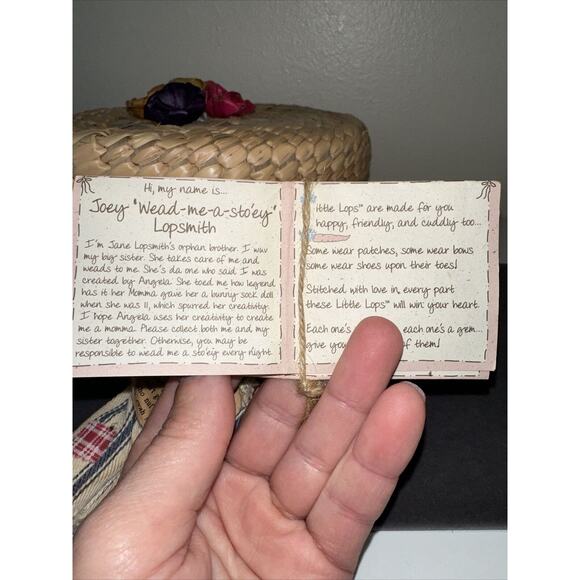 Hi, my name is...
Joey "Wead-me-a-sto'ey"
Lopsmith
I'm Jane Lopsmith's orphan brother. I wuv
my big sister. She takes care of me and
weads to me. She's da one who said I was
created by Angela. She toed me how legend
has it her Momma gave her a bunny sock doll
when she was 11, which spurred her creativity.
I hope Angela uses her creativity to create
me a momma. Please collect both me and my
sister together. Otherwise, you may be
responsible to wead me a sto'ey every night.
ittle Lops™ are made for you
happy, friendly, and cuddly too...
Some wear patches, some wear bows
some wear shoes upon their toes!
Stitched with love in every part
these Little Lops™ will win your heart.
Each one's each one's a gem...
give of them!